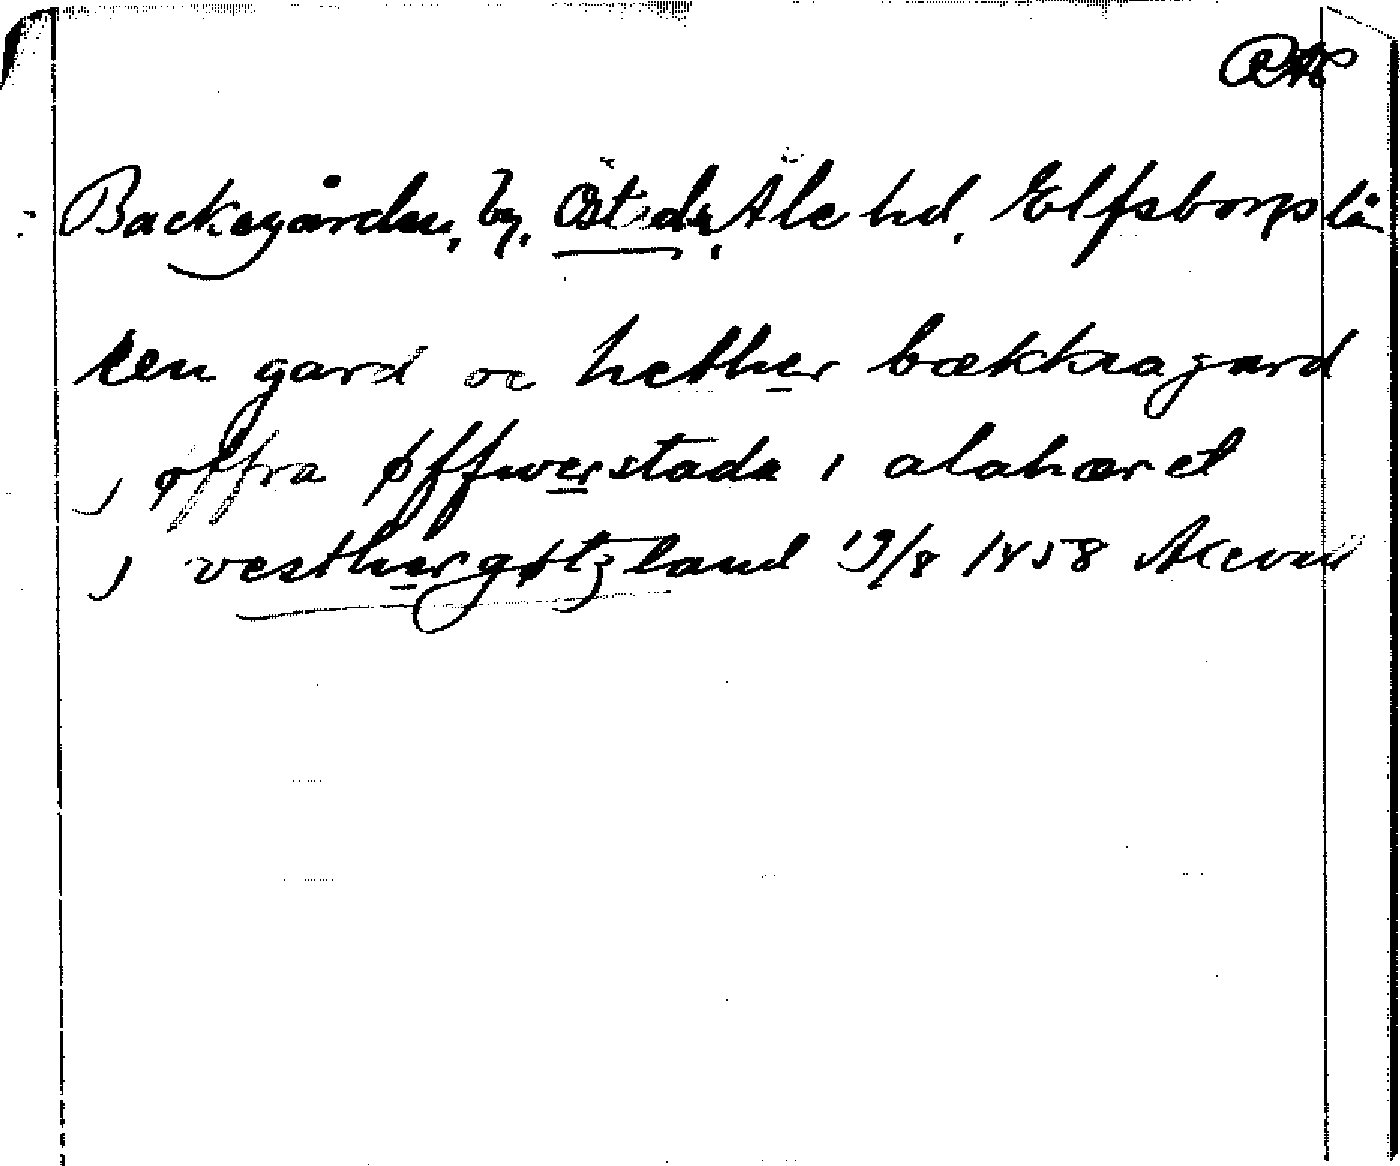 Backegården, by, Östad, Ale hd, Elfsborgs län
en gard oc hether bækkragard
j øffra øffwerstada i alahæret
j vesthergøtzland 19/8 1458